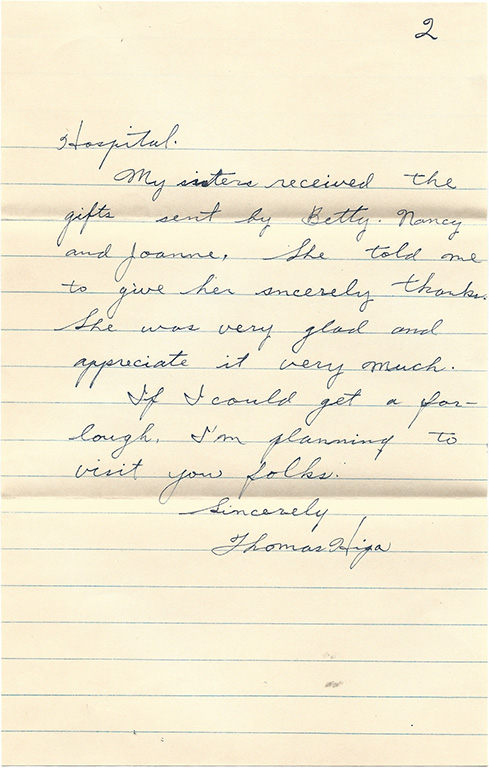 2
Hospital.
My sisters received the
gifts sent by Betty. Nancy
and Joanne. She told me
to give her sincerely thanks.
She was very glad and
appreciate it very much.
If I could get a for-
lough, I'm planning to
visit you folks.
Sincerely
Thomas Higa